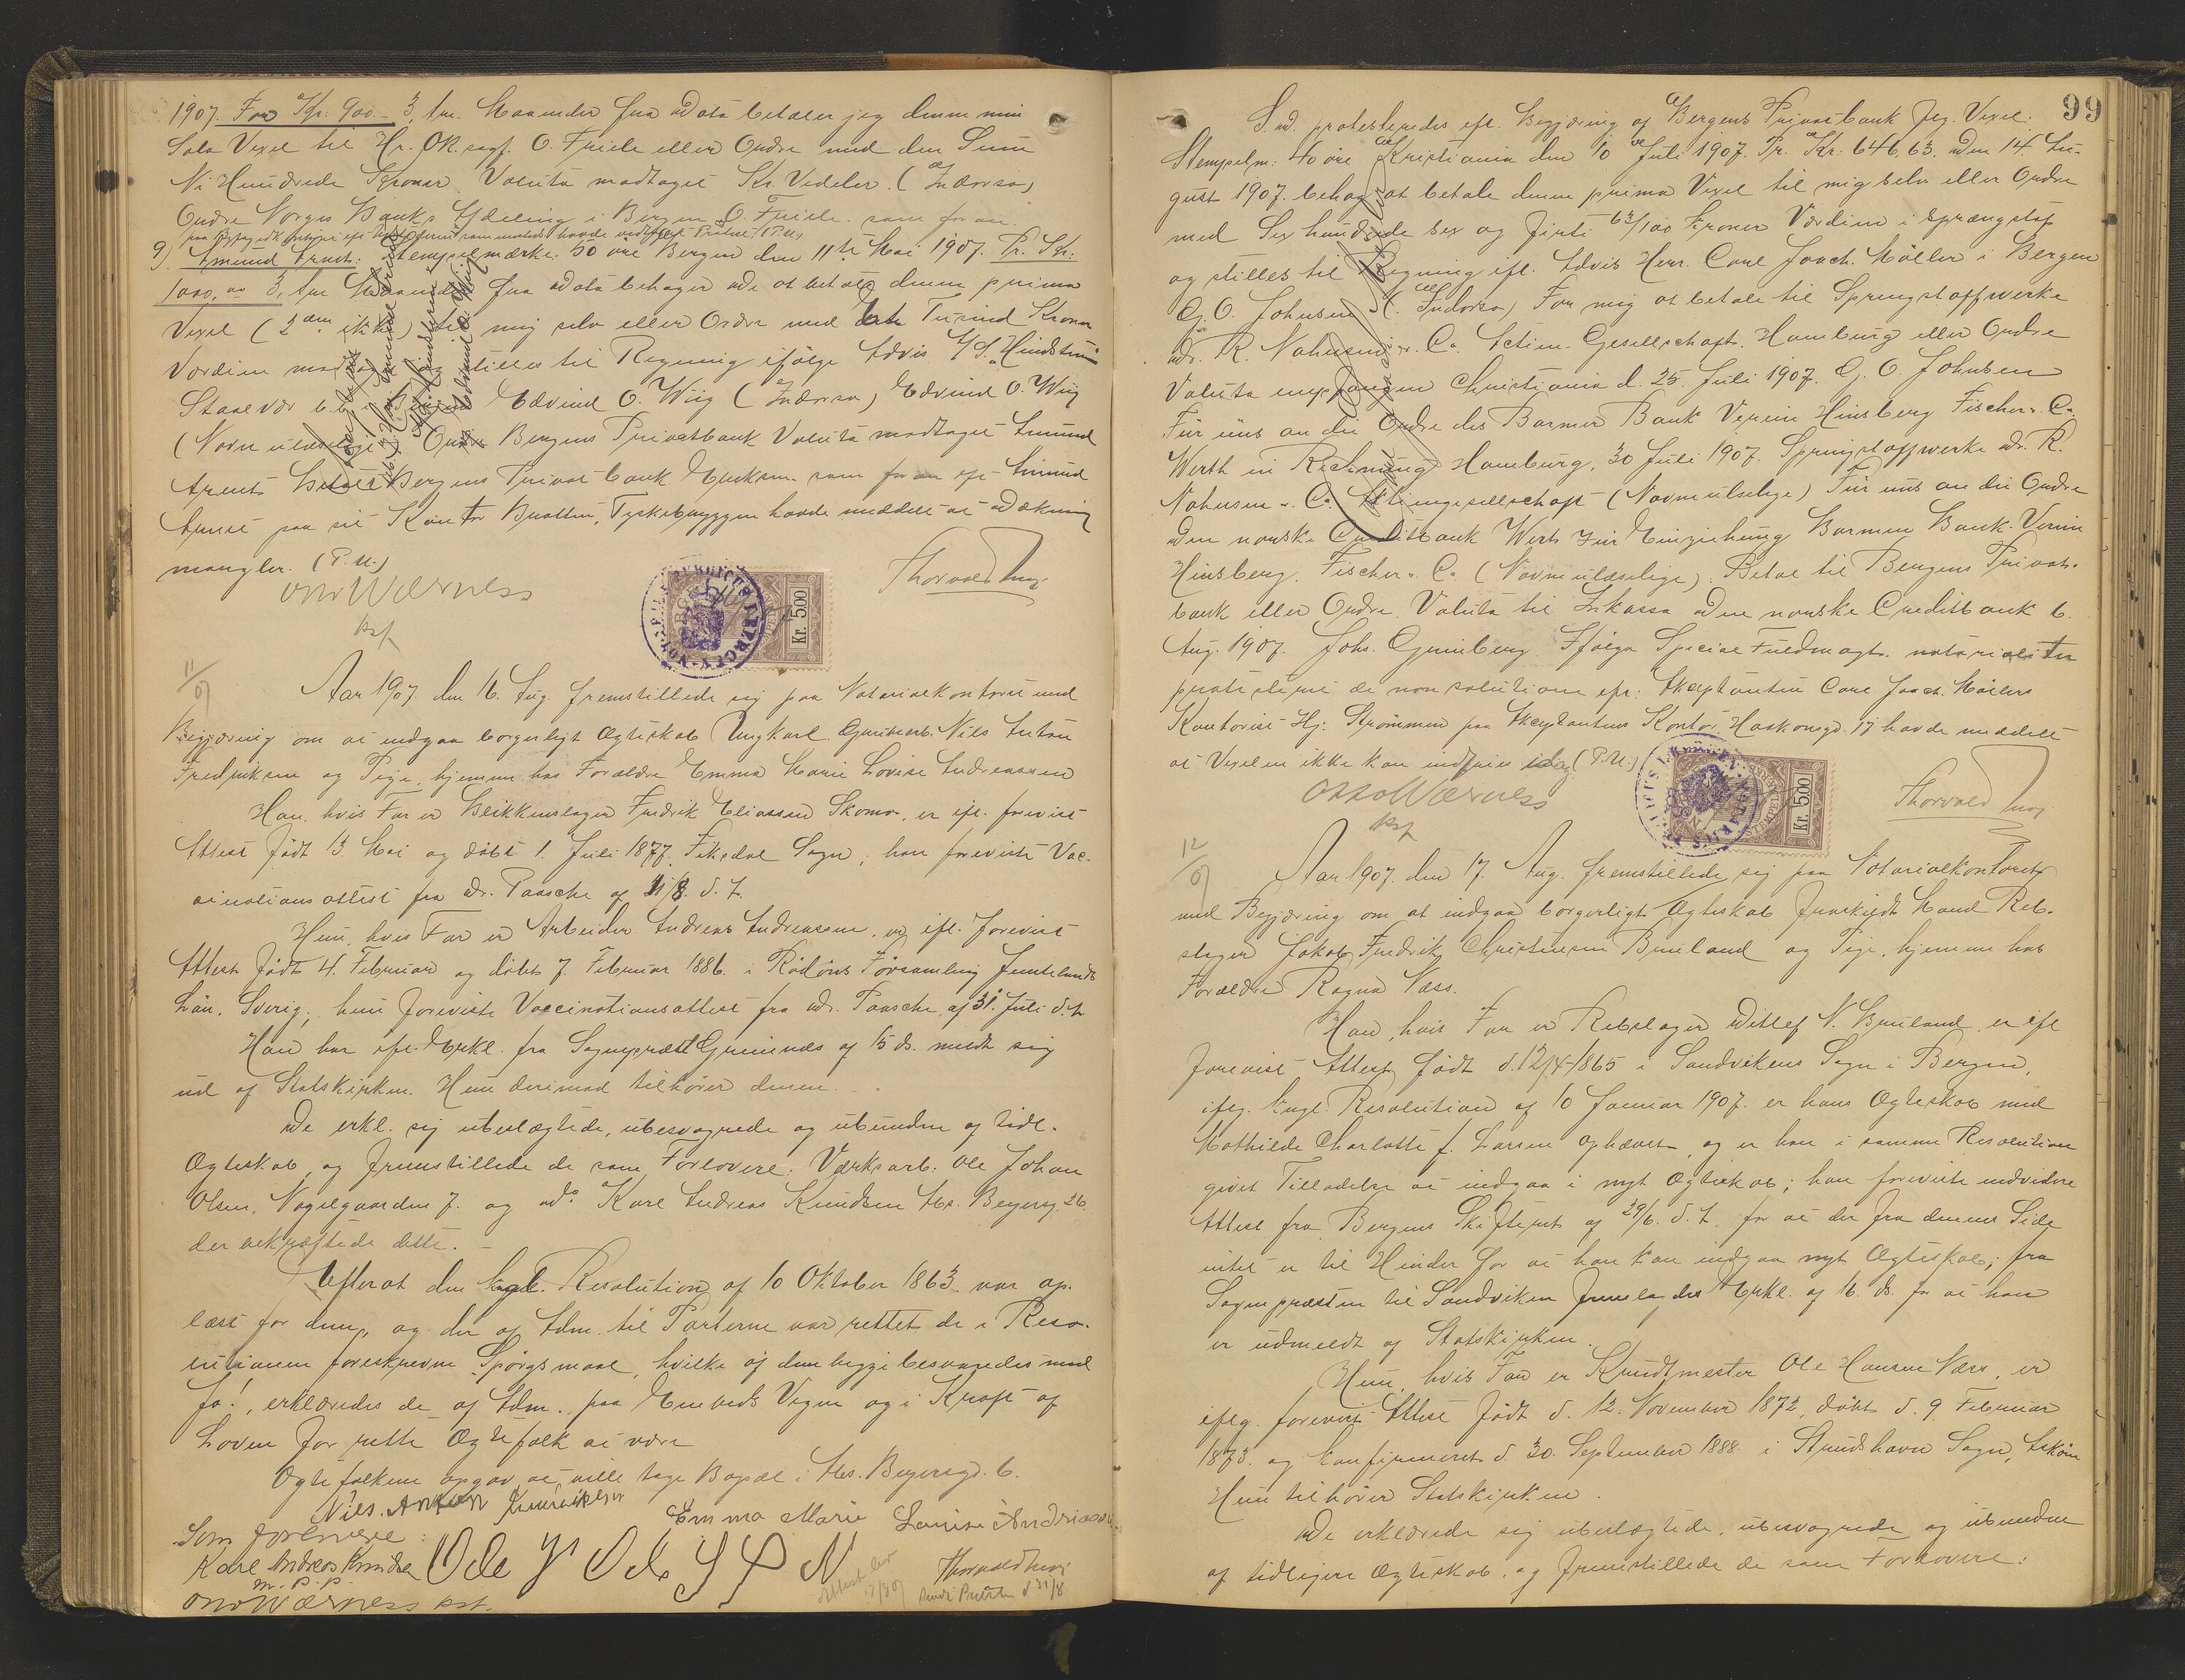 1907. For Kr. 900.- 3, tre Maaneder fra Dato betaler jeg denne min
Sola Vexel til Hr. OR.sagf. O. Friele eller Ordre med den Sum
Ni Hundrede Kroner Valuta modtaget Kr. Vedeler. (Indorso)
Ordre Norges Banks Afdeling i Bergen O. Friele. som foran
9) Amund Arnet: Stempelmærke: 50 øre Bergen den 11te Mai 1907. Pr. Kr.
1000,00 3, tre Maaneder fra Dato behager De at betale denne prima
Vexel (2den ikke) til mig selv eller Ordre med Et Tusind Kroner
Værdien modtaget og stilles til Regning ifølge Advis A/S. Hindsten
Edvind O. Wiig (Indorso) Edvind O. Wiig
(Navn ulæseligt) Ordre Bergens Privatbank Valuta modtaget Amund
Arnet Betalt Bergens Privatbank som foran efr Amund
Arnet paa sit Kontor Bratten, Tyskebryggen havde meddelt at Dækning
mangler. (P.U.)
Otto Wærness
kst
Thorvald
Kr. 5.00
11/07
Aar 1907. den 16. Aug. fremstillede sig paa Notarialkontoret med
Begjæring om at indgaa borgerligt Ægteskab Ungkarl Nils Anton
Fredriksen og Pige, hjemme hos Forældre Emma Marie Lovise Andreassen
Han, hvis Far er Blikkenslager Fredrik Eliassen Skomo, er ifl. forevist
Attest født 13. Mai og døbt 1. Juli 1877. Fiksdal Sogn; han foreviste Vac-
cinationsattest fra Dr. Paasche af 11/8. d. A.
Hun, hvis Far er Arbeider Andreas Andreassen, er ifl. forevist
Attest født 4. Februar og døbt 7. Februar 1886. i Rödöns Församling Jemtelands
Län. Sverig; hun foreviste Vaccinationsattest fra Dr. Paasche af 31. Juli d. A.
Han har ifl. Erkl. fra Sogneprest Grimnæs af 15 ds. meldt sig
ud af Statskirken. Hun derimod tilhører denne.
De erkl. sig ubeslægtede, ubesvogrede og ubundne af tidl.
Ægteskab, og fremstillede de som Forlovere: Værksarb: Ole Johan
Olsen, Nagelgaarden 7. og do Karl Andreas Knudsen Abs. Beyersg. 26.
der bekræftede dette. -
Efterat den kgl. Resolution af 10 Oktober 1863 var op-
læst for dem, og der af Adm. til Parterne var rettet de i Reso-
lutionen foreskrevne Spørgsmaal, hvilke af dem begge besvaredes med
Ja!, erklæredes de af Adm. paa Embeds Vegne og i Kraft af
Loven for rette Ægtefolk at være
Ægtefolkene opgav at ville tage Bopæl i Abs. Beyersgd. 6.
Nils. Anton Fredriksen
Emma Marie Lovise Andreassen
Som forlovere:
Karl Andreas Knudsen
m. p. p.
Otto Wærness kst.
99
S.D. protesteredes efl. Begjæring af Bergens Privatbank flg. Vexel.
Stempelm: 40 øre Kristiania den 10 Juli 1907. Pr. Kr: 646,63. Den 14. Au-
gust 1907. behag at betale denne prima Vexel til mig selv eller Ordre
med Sex hundrede sex og firti 63/100 Kroner Værdien i Sprængstof
og stilles til Regning ifl. Advis Herr. Carl Joach. Møller i Bergen
G. O. Johnsen (Indorso) For mig at betale til Sprengstoffwerke
Dr. R. Nahnsen & Co. Actien-Gesellschaft. Hamburg eller Ordre
Valuta empfangen Christiania d. 25. Juli 1907. G. O. Johnsen
Für uns an die Ordre des Barmer Bank Verein Hinsberg Fischer & Co.
Werth in Rechnung Hamburg, 30 Juli 1907. Sprengstoffwerke Dr. R.
Nahnsen & Co. Aktiengesellschaft (Navn ulæselige) Für uns an die Ordre
Den norske Creditbank Werth zur Einziehung Barmer Bank-Verein
Hinsberg. Fischer & Co. (Navne ulæselige). Betal til Bergens Privat-
bank eller Ordre. Valuta til Inkasso Den norske Creditbank 6.
Aug. 1907. Johs. Grimberg. Ifølge Special Fuldmagt.
protesteret de non solutione efr: Akceptanten Carl Joach. Møllers
Kontorist Hj. Strømmen paa Akceptantens Kontor Haakonsgd. 17 havde meddelt
at Vexelen ikke kan indfries idag (P.U.)
Otto Wærness
kst
Thorvald
Kr. 5.00
12/07
Aar 1907. den 17. Aug. fremstillede sig paa Notarialkontoret
med Begjæring om at indgaa borgerligt Ægteskab fraskildt Mand Reb-
slager Jakob Fredrik Christensen Bruland og Pige, hjemme hos
Forældre Ragna Næss.
Han, hvis Far er Rebslager Ditlef N. Bruland er efl
forevist Attest født d. 12/4-1865 i Sandvikens Sogn i Bergen,
iflg. kngl. Resolution af 10 Januar 1907. er hans Ægteskab med
Mathilde Charlotte f. Larsen ophævet, og er han i samme Resolution
givet Tilladelse at indgaa i nyt Ægteskab; han foreviste endvidere
Attest fra Bergens Skifteret af 29/6. d. A. for at der fra dennes Side
intet er til Hinder for at han kan indgaa nyt Ægteskab; fra
Sognepræsten til Sandviken Erkl. af 16. ds. for at han
er udmeldt af Statskirken.
Hun, hvis Far er Krudtmester Ole Hansen Næss, er
iflg. forevist Attest født d. 12. November 1872, døbt d. 9. Februar
1873. og konfirmeret d. 30. September 1888 i Strudshavn Sogn, Askøen
Hun tilhører Statskirken.
De erklærede sig ubeslægtede, ubesvogrede og ubundne
af tidligere Ægteskab. og fremstillede de som Forlovere: